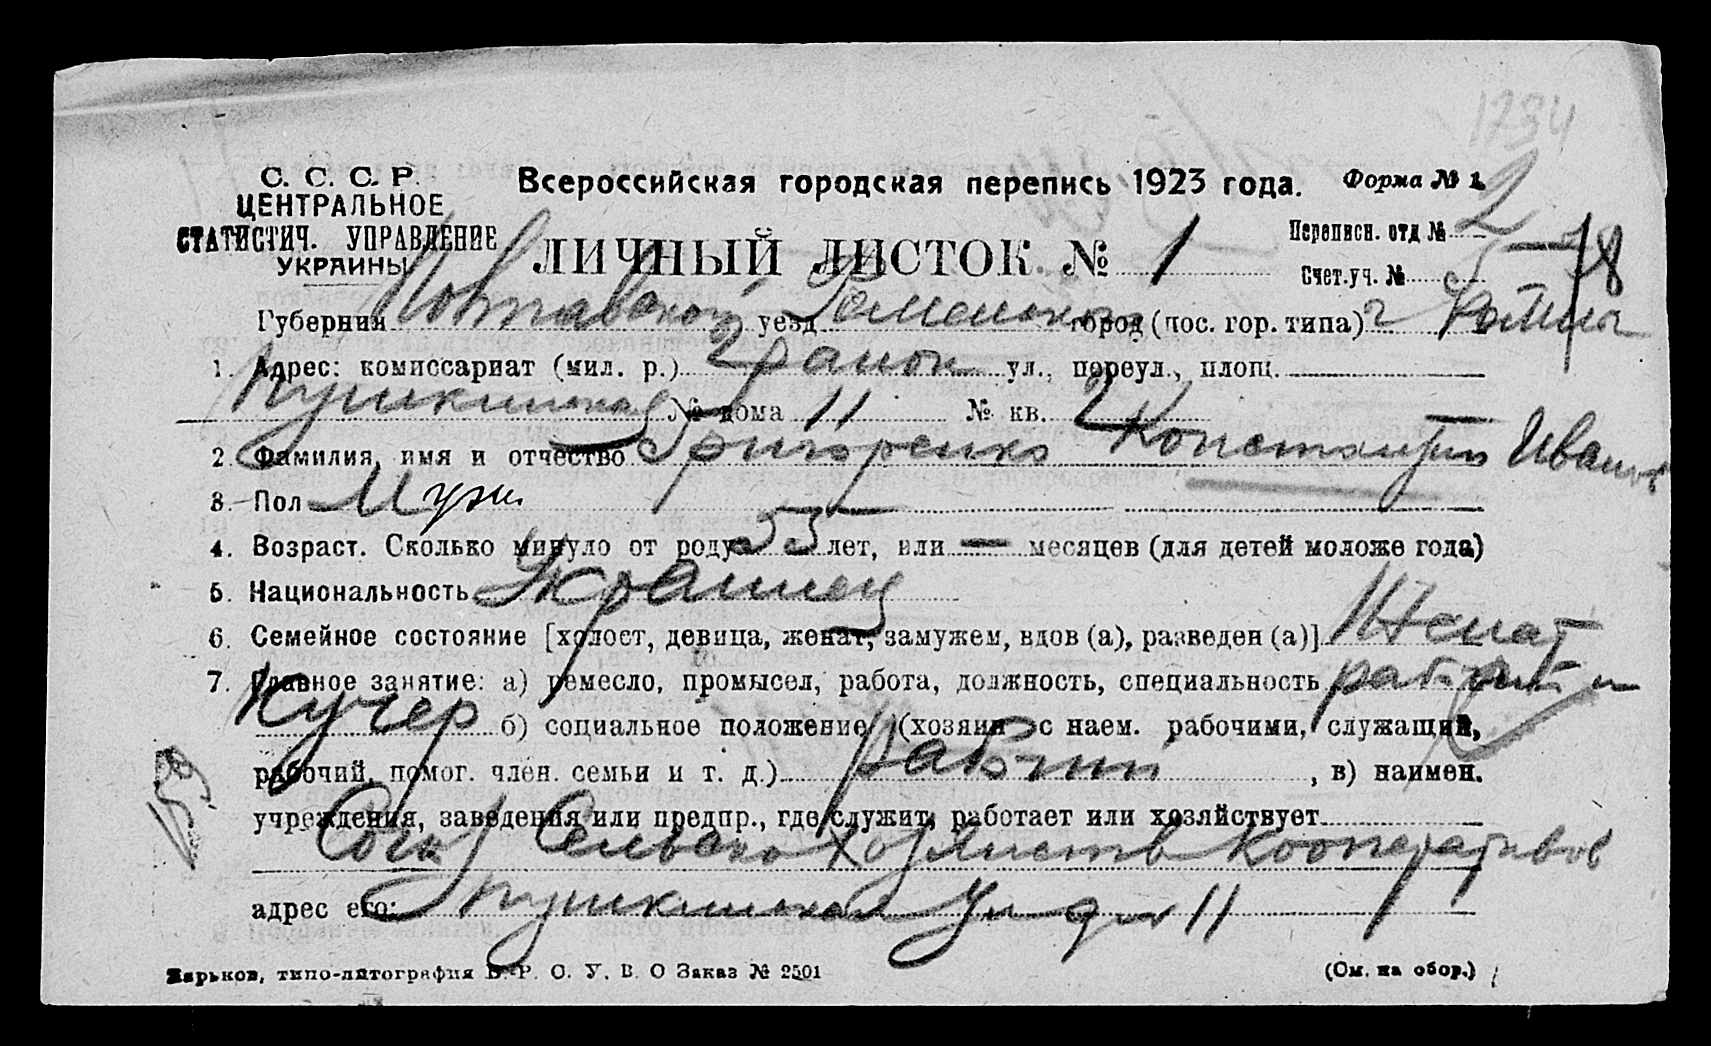 1234
С. С. С. Р.
ЦЕНТРАЛЬНОЕ
СТАТИСТИЧ. УПРАВЛЕНИЕ
УКРАИНЫ
Всероссийская городская перепись 1923 года.
Форма № 1.
ЛИЧНЫЙ ЛИСТОК № 1
Переписн. отд № 2
Счет.уч. № 5 — 78
Губерния Полтавской уезд Роменский город (пос. гор. типа) г Ромны
1. Адрес: комиссариат (мил. р.) 2 район ул., переул., площ.
Пушкинская № дома 11 № кв. 2
2. Фамилия, имя и отчество Григоренко Константин Иванов
3. Пол Муж
4. Возраст. Сколько минуло от роду 55 лет, или — месяцев (для детей моложе года)
5. Национальность Украинец
6. Семейное состояние [холост, девица, женат, замужем, вдов (а), разведен (а)] Женат
7. Главное занятие: а) ремесло, промысел, работа, должность, специальность
Кучер б) социальное положение (хозяин с наем. рабочими, служащий,
рабочий, помог. член. семьи и т. д.) рабочий, в) наимен.
учреждения, заведения или предпр., где служит, работает или хозяйствует
Союз Сельско Хозяйств Кооперативов
адрес его: Пушкинская ул дом 11
Харьков, типо-литография В. Р. С. У. В. О Заказ № 2501
(См. на обор.)